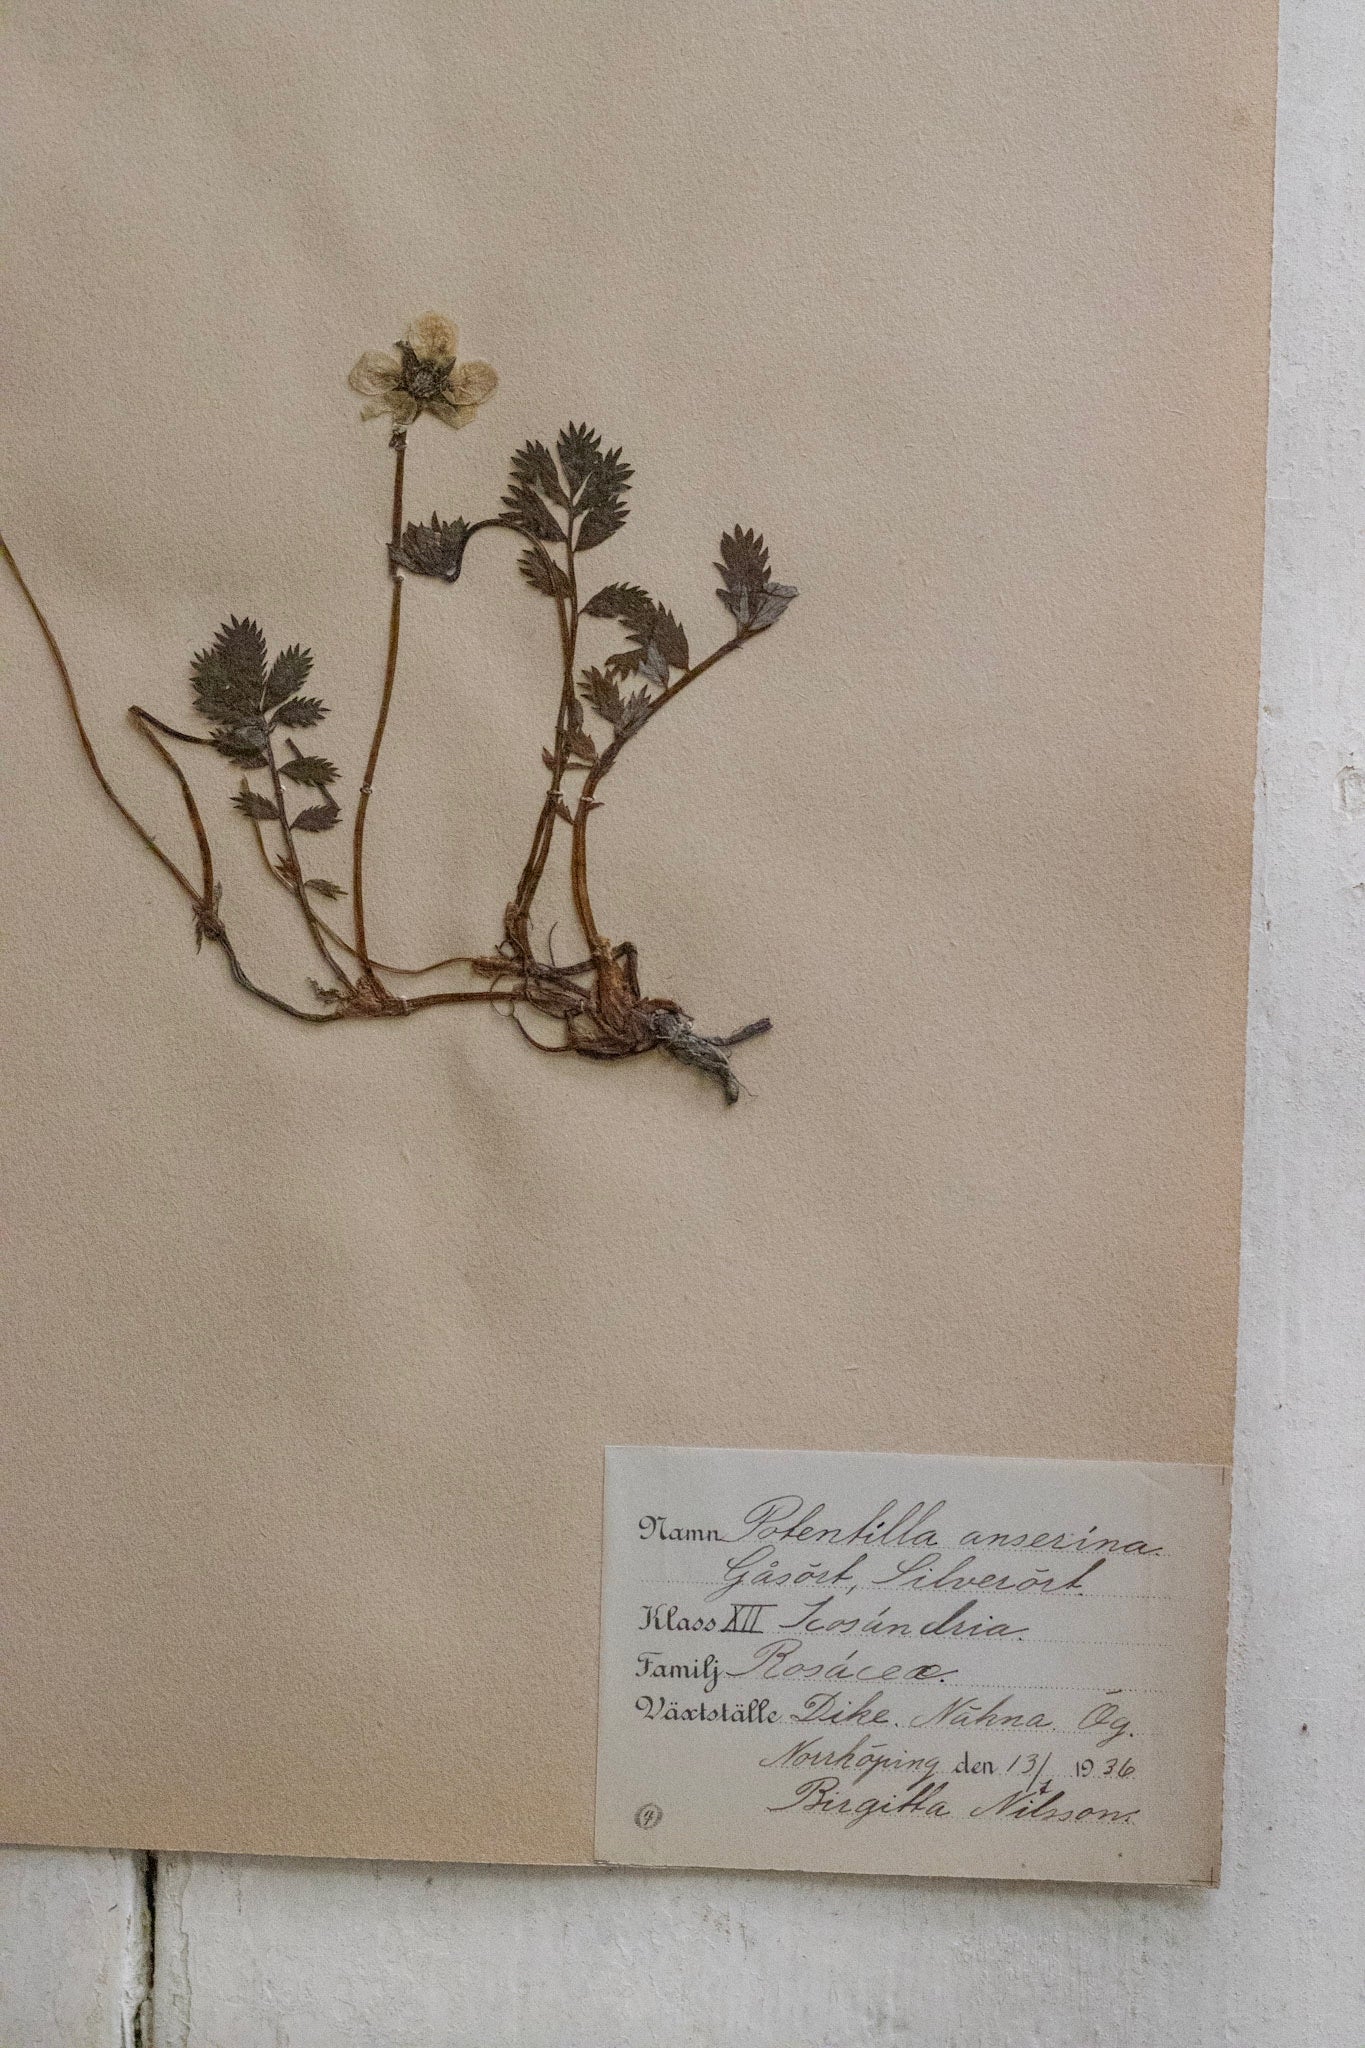 Namn Potentilla anserina.
Gåsört, Silverört.
Klass XII Icosándria.
Familj Rosáceæ.
Växtställe Dike. Nähna. Ög.
Norrköping den 13/7 1936
Birgitta Nilsson.
4